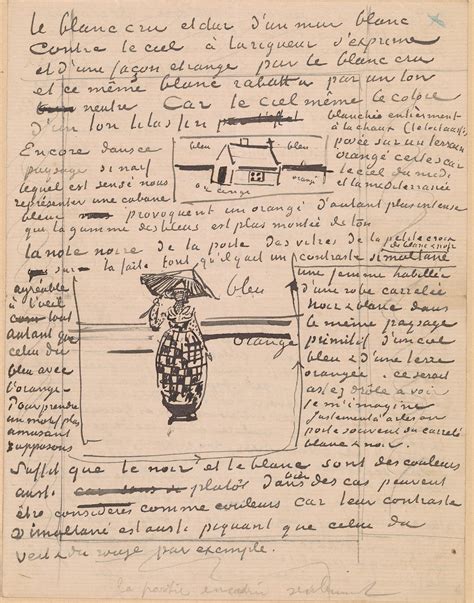 le blanc cru et dur d'un mur blanc
contre le ciel à la rigueur s'exprime
et d'une façon étrange par le blanc cru
et ce même blanc rabattu par un ton
neutre Car le ciel même le colore
d'un ton lilas fin
Encore dans ce
paysage si naïf
lequel est sensé nous
représenter une cabane
bleu
bleu
orange
orangé
blanchie entièrement
à la chaux (le toit aussi)
posée sur un terrain
orangé certes car
le ciel du midi
et la mediterranée
bleue provoquent un orangé d'autant plus intense
que la gamme des bleus est plus montée de ton
la note noire de la porte des vitres de la petite croix
sur le faîte fait qu'il y ait un contraste simultané
du blanc & noir
agréable
à l'oeil
tout
autant que
celui du
bleu avec
l'orangé
Pour prendre
un motif plus
amusant
supposons
bleu
orangé
une femme habillée
d'une robe carrelée
noir & blanc dans
le même paysage
primitif d'un ciel
bleu & d'une terre
orangée. ce serait
assez drôle à voir
je m'imagine
justement à Arles on
porte souvent du carrelé
blanc & noir.
Suffit que le noir et le blanc sont des couleurs
aussi plutôt dans bien des cas peuvent
être considérés comme couleurs car leur contraste
simultané est aussi piquant que celui du
vert & du rouge par exemple.
la partie